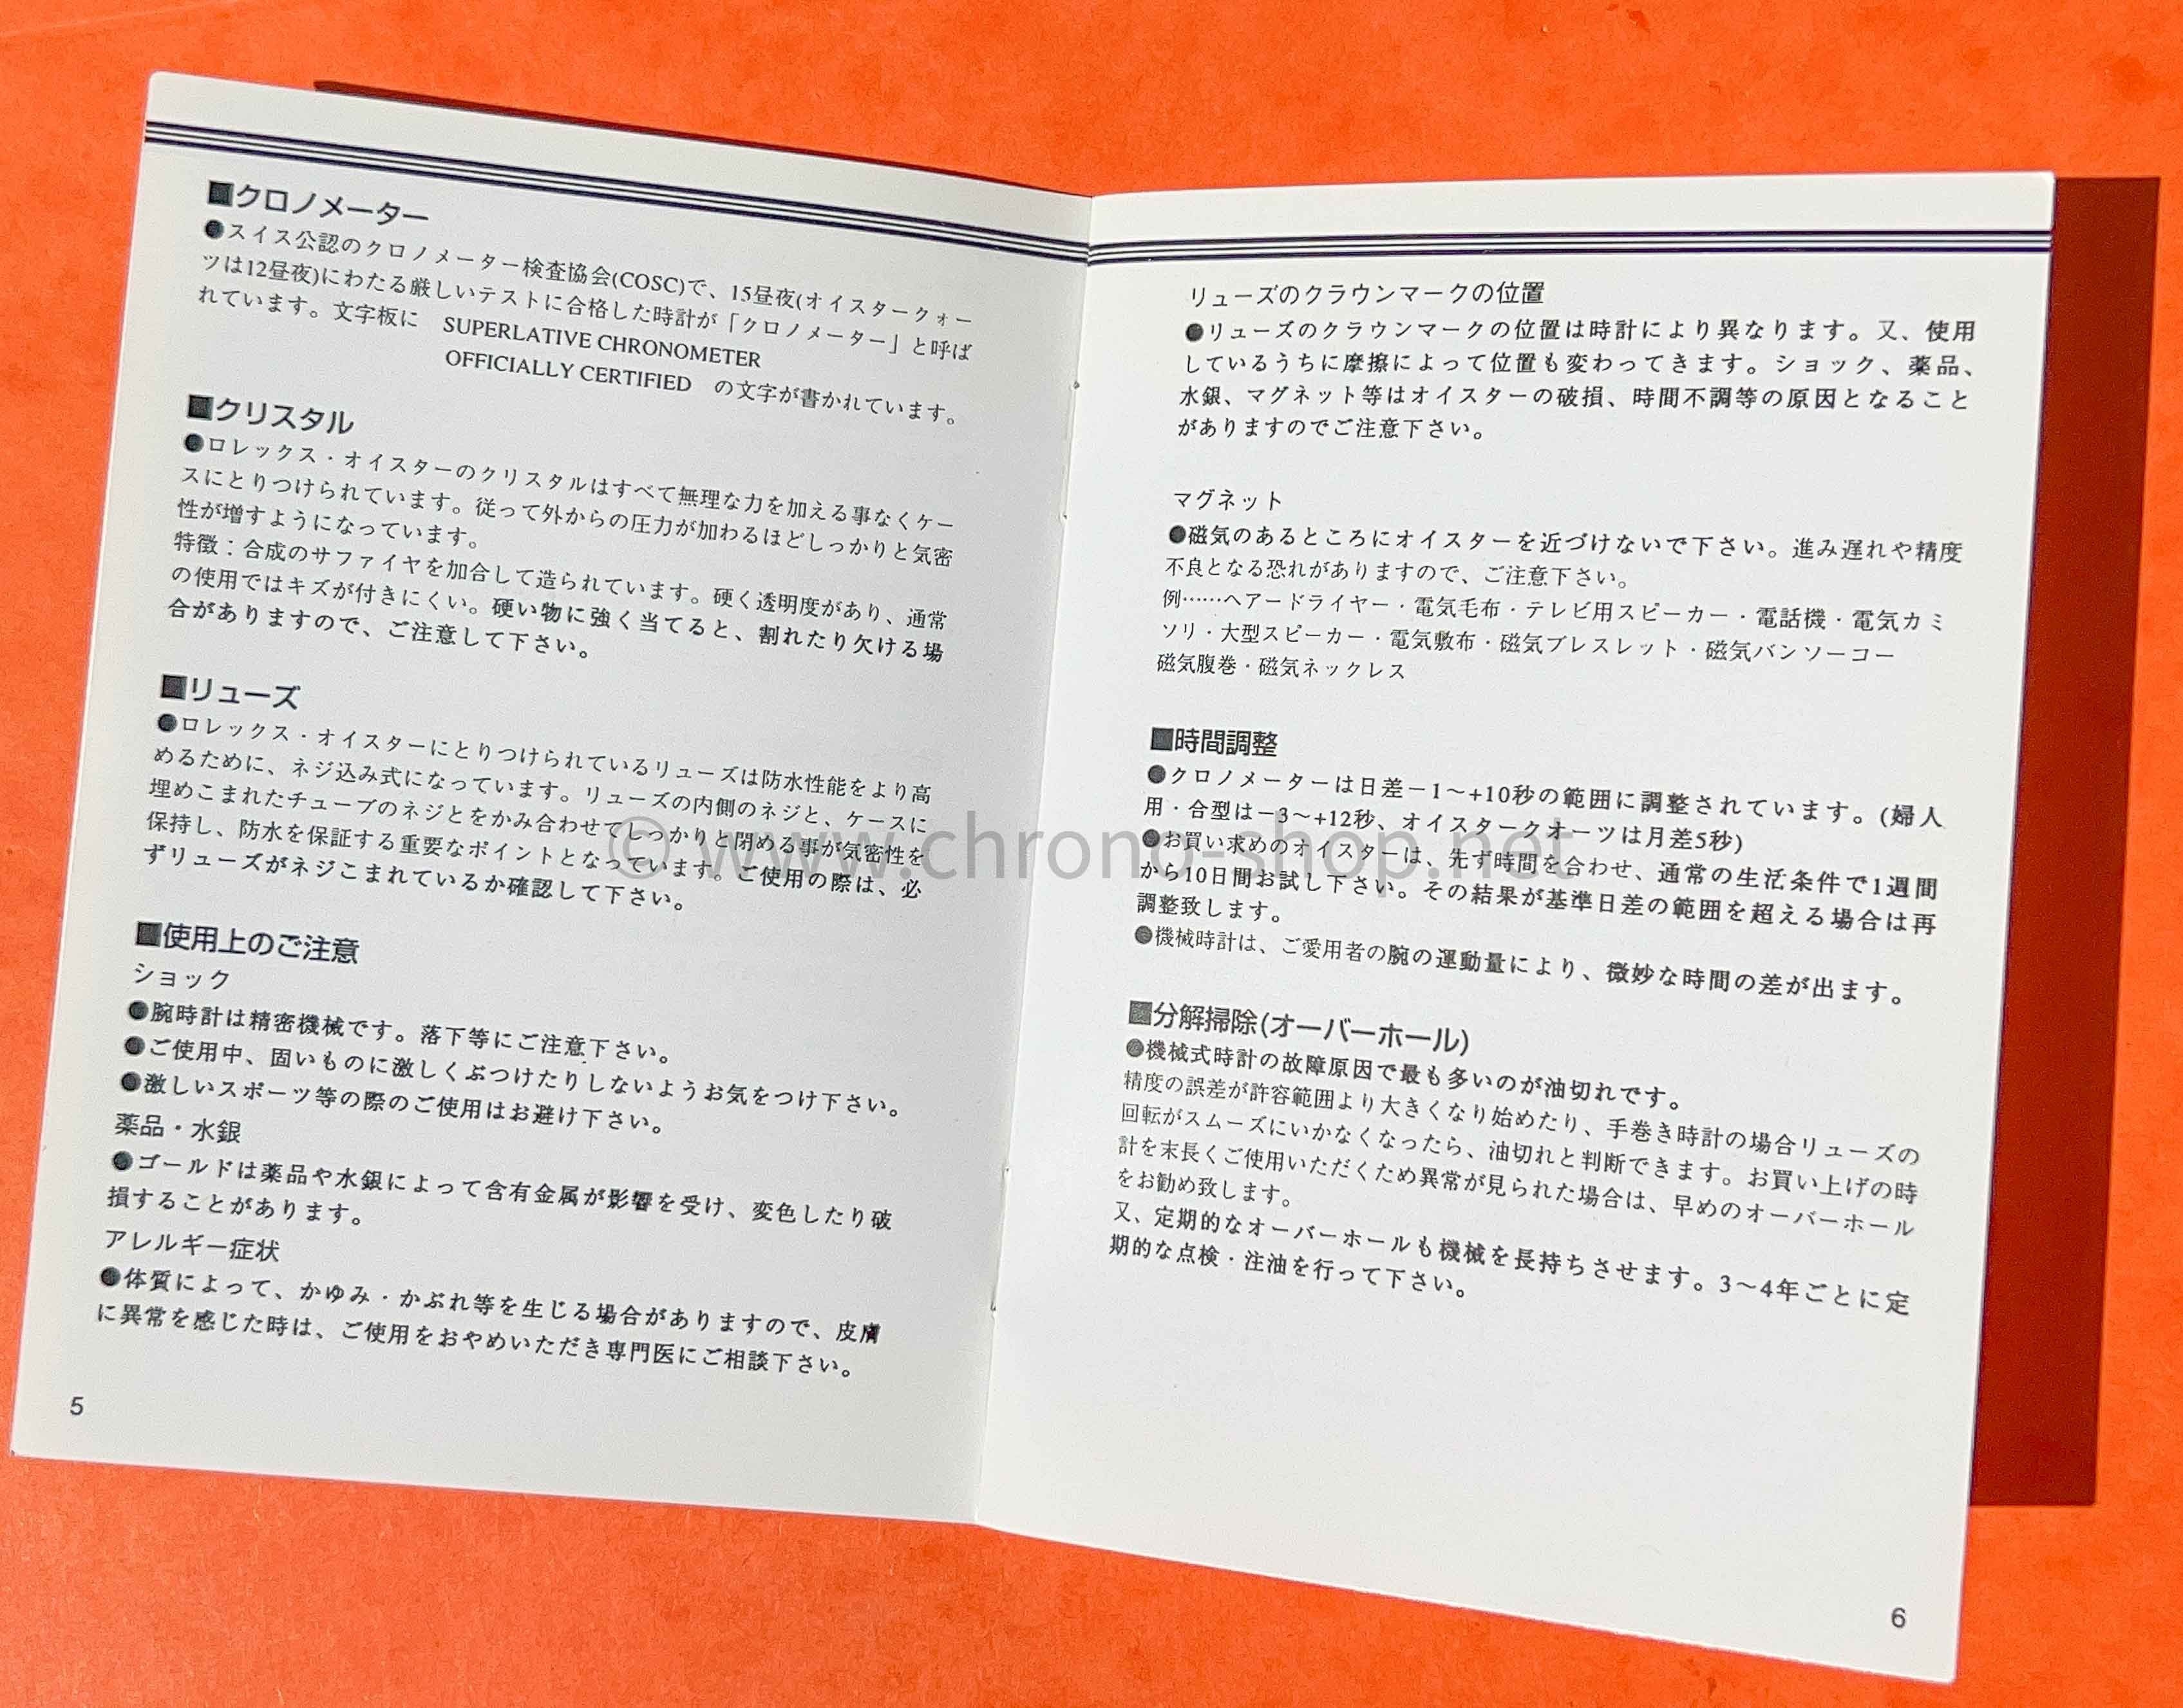 ■クロノメーター
●スイス公認のクロノメーター検査協会(COSC)で、15昼夜(オイスタークォー
ツは12昼夜)にわたる厳しいテストに合格した時計が「クロノメーター」と呼ば
れています。文字板に SUPERLATIVE CHRONOMETER
OFFICIALLY CERTIFIED の文字が書かれています。
■クリスタル
●ロレックス・オイスターのクリスタルはすべて無理な力を加える事なくケー
スにとりつけられています。従って外からの圧力が加わるほどしっかりと気密
性が増すようになっています。
特徴：合成のサファイヤを加合して造られています。硬く透明度があり、通常
の使用ではキズが付きにくい。硬い物に強く当てると、割れたり欠ける場
合がありますので、ご注意して下さい。
■リューズ
●ロレックス・オイスターにとりつけられているリューズは防水性能をより高
めるために、ネジ込み式になっています。リューズの内側のネジと、ケースに
埋めこまれたチューブのネジとをかみ合わせてしっかりと閉める事が気密性を
保持し、防水を保証する重要なポイントとなっています。ご使用の際は、必
ずリューズがネジこまれているか確認して下さい。
■使用上のご注意
ショック
●腕時計は精密機械です。落下等にご注意下さい。
●ご使用中、固いものに激しくぶつけたりしないようお気をつけ下さい。
●激しいスポーツ等の際のご使用はお避け下さい。
薬品・水銀
●ゴールドは薬品や水銀によって含有金属が影響を受け、変色したり破
損することがあります。
アレルギー症状
●体質によって、かゆみ・かぶれ等を生じる場合がありますので、皮膚
に異常を感じた時は、ご使用をおやめいただき専門医にご相談下さい。
5
リューズのクラウンマークの位置
●リューズのクラウンマークの位置は時計により異なります。又、使用
しているうちに摩擦によって位置も変わってきます。ショック、薬品、
水銀、マグネット等はオイスターの破損、時間不調等の原因となること
がありますのでご注意下さい。
マグネット
●磁気のあるところにオイスターを近づけないで下さい。進み遅れや精度
不良となる恐れがありますので、ご注意下さい。
例……ヘアードライヤー・電気毛布・テレビ用スピーカー・電話機・電気カミ
ソリ・大型スピーカー・電気敷布・磁気ブレスレット・磁気バンソーコー
磁気腹巻・磁気ネックレス
■時間調整
●クロノメーターは日差－1～+10秒の範囲に調整されています。(婦人
用・合型は－3～+12秒、オイスタークオーツは月差5秒)
●お買い求めのオイスターは、先ず時間を合わせ、通常の生活条件で1週間
から10日間お試し下さい。その結果が基準日差の範囲を超える場合は再
調整致します。
●機械時計は、ご愛用者の腕の運動量により、微妙な時間の差が出ます。
■分解掃除(オーバーホール)
●機械式時計の故障原因で最も多いのが油切れです。
精度の誤差が許容範囲より大きくなり始めたり、手巻き時計の場合リューズの
回転がスムーズにいかなくなったら、油切れと判断できます。お買い上げの時
計を末長くご使用いただくため異常が見られた場合は、早めのオーバーホール
をお勧め致します。
又、定期的なオーバーホールも機械を長持ちさせます。3～4年ごとに定
期的な点検・注油を行って下さい。
6
© www.chrono-shop.net